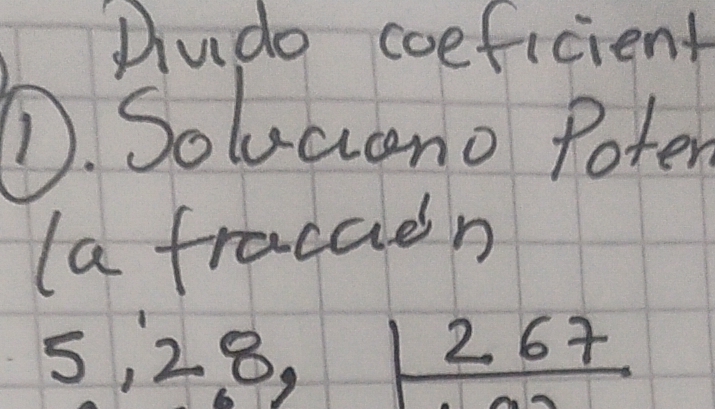 Divido coeficient
①. Soluciono Poten
la fracción
5,28, 267